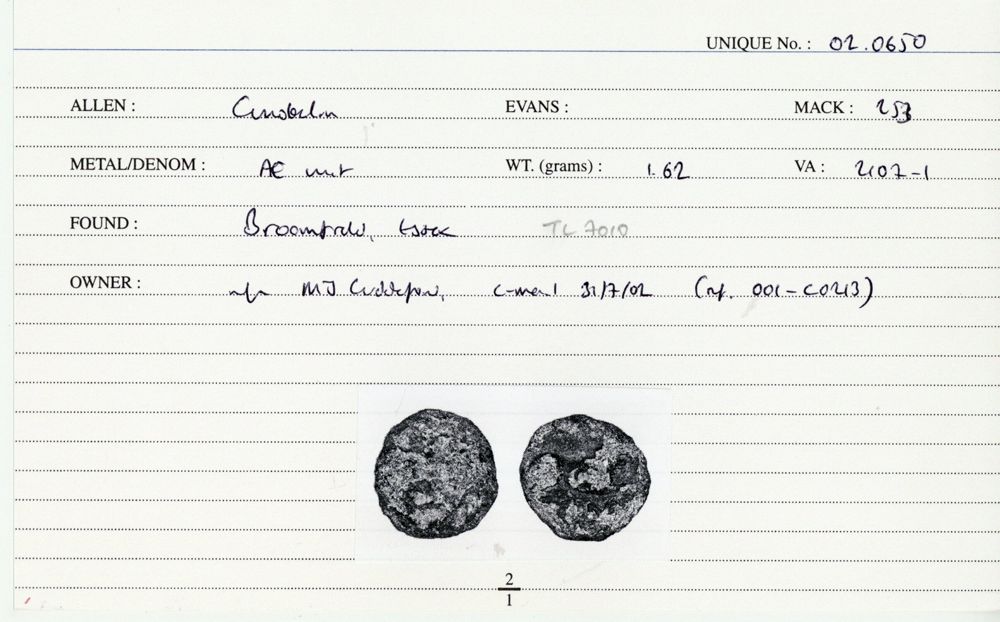 UNIQUE No. : 02.0650
ALLEN : Cunobelin EVANS : MACK : 253
METAL/DENOM : AE unit WT. (grams) : 1.62 VA : 2107-1
FOUND : Broomfield, Essex TL 7010
OWNER : MJ Cuddeford, e-mail 31/7/02 (ref. 001-C0213)
2
1